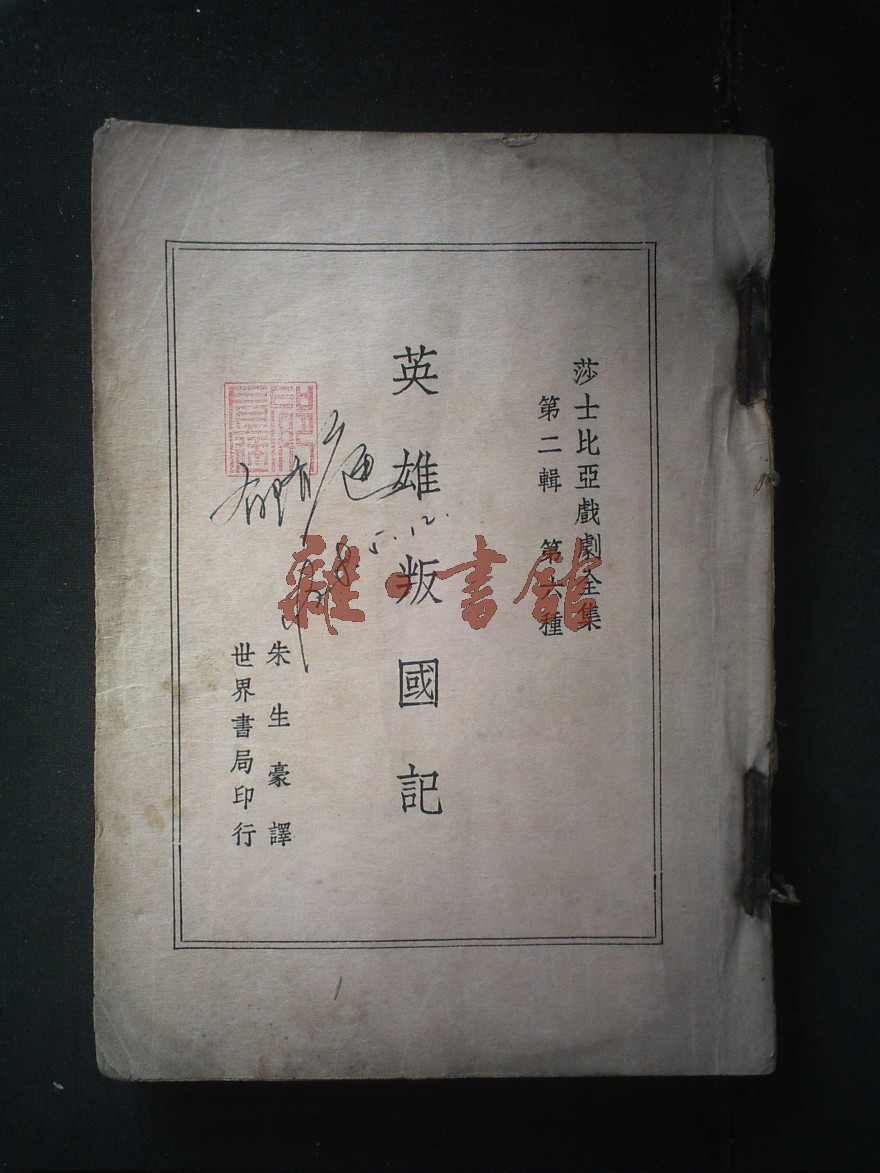 莎士比亞戲劇全集
第二輯 第六種
英雄叛國記
朱生豪譯
世界書局印行
雜·書館
5.12.